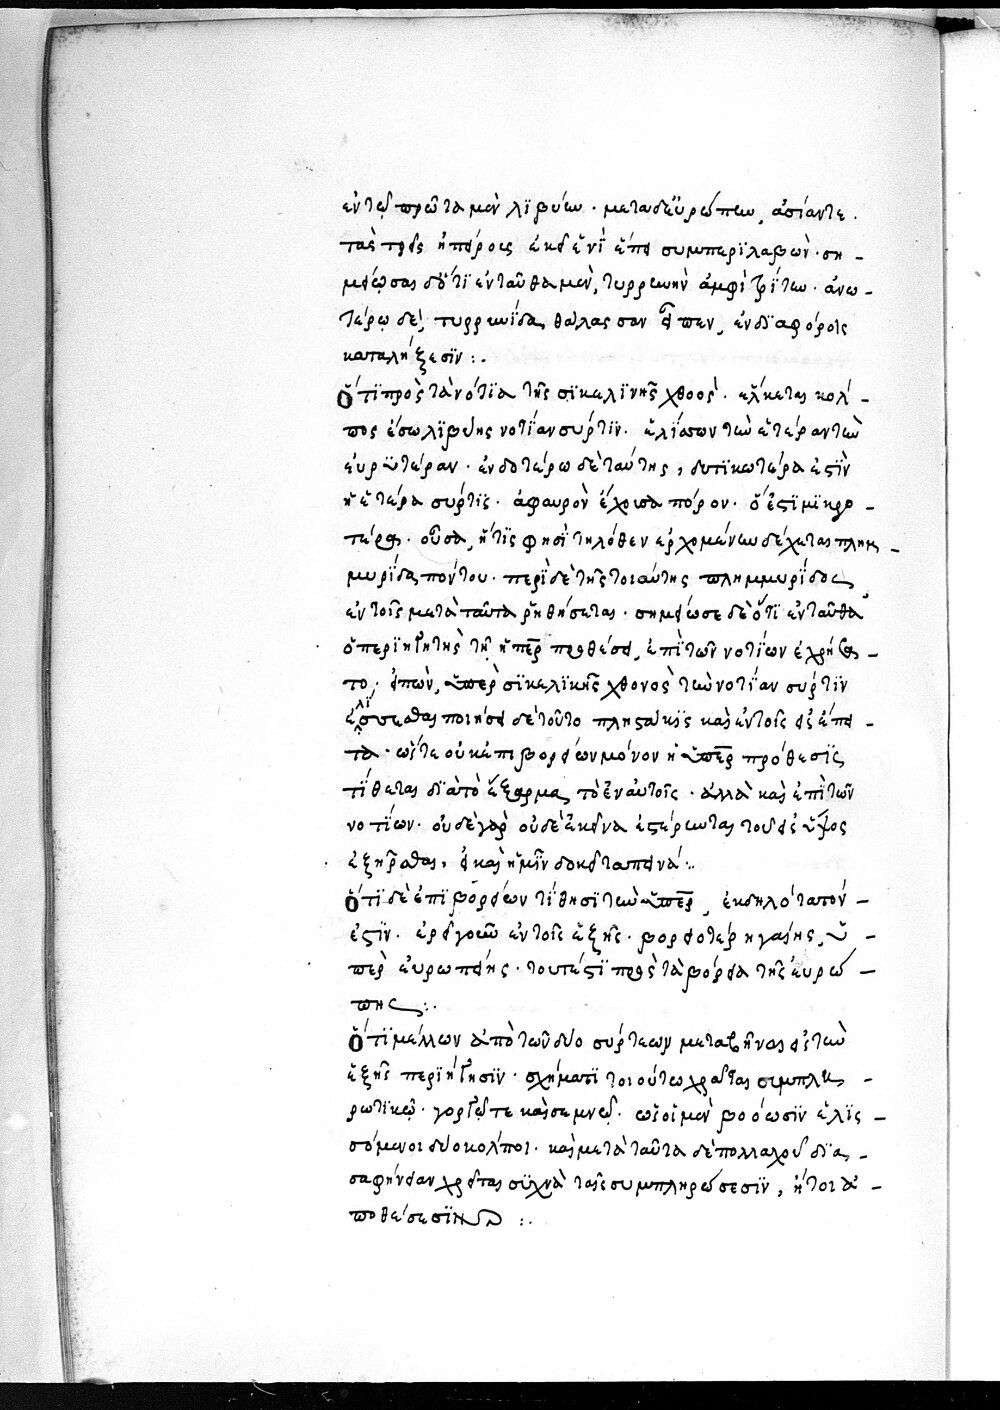 ἐν τῷ πρῶτα μὲν λϊβύην · μετα δ' εὐρώπην, ἀσίαν τε ·
τὰς τρεῖς ἠπείρους ἐκεῖ ἑνὶ ἔπει συμπερϊλαβὼν · ση -
μείωσαι δ' ὅτϊ ἐνταῦθα μὲν, τυρρηνὴν ἀμφιτρίτην · ἀνω -
τέρω δὲ, τυρρηνίδα θάλασσαν εἶπεν, ἐν δϊαφόροις
καταλήξεσϊν : .
Ὅτϊ πρὸς τὰ νότϊα τῆς σϊκελϊκῆς χθονὸς · ἕλκεται κόλ -
πος ἔσω λϊβύης νοτίαν σύρτϊν · ἑλίσσων τὴν ἑτέραν τὴν
εὐρυτέραν · ἐνδοτέρω δὲ ταύτης, δυτϊκωτέρα ἐστϊν
ἡ ἑτέρα σύρτϊς · ἀφαυρὸν ἔχουσα πόρον · ὅ ἐστϊ μϊκρο -
τέρα · οὖσα, ἥτϊς φησὶ τηλόθεν ἐρχομένην δέχεται πλημ -
μυρίδα πόντου · περὶ δὲ τῆς τοιαύτης πλημμυρίδος,
ἐν τοῖς μετὰ ταῦτα ῥηθήσεται · σημείωσαι δὲ ὅτϊ ἐνταῦθα
ὁ περϊηγητὴς τῇ ὑπὲρ προθέσει, ἐπὶ τῶν νοτίων ἐχρήσα -
το, εἰπὼν, ὑπὲρ σϊκελϊκῆς χθονὸς τὴν νοτίαν σύρτϊν
ἑλίσσεσθαι ποιήσει δὲ τοῦτο πλειστάκϊς καὶ ἐν τοῖς εἰς ἔπει -
τα · ὥστε οὐκ ἐπι βορείων μόνον ἡ ὑπὲρ πρόθεσϊς
τίθεται δϊὰ τὸ ἔξαρμα τὸ ἐν αὐτοῖς · ἀλλὰ καὶ ἐπὶ τῶν
νοτίων · οὐδὲ γὰρ οὐδὲ ἐκεῖνα ἐστέρηνται τοῦ εἰς ὕψος
ἐξῆρθαι, εἰ καὶ ἡμῖν δοκεῖ ταπεινά : .
Ὅτϊ δὲ ἐπϊ βορείων τίθησϊ τὴν ὑπὲρ, ἐκδηλότατόν -
ἐστϊν · ἐρεῖ γοῦν ἐν τοῖς ἑξῆς · βορειοτέρη γαίης, ὑ -
πὲρ εὐρωπείης · τουτέστϊ πρὸς τὰ βόρεια τῆς εὐρώ -
πης : .
Ὅτϊ μέλλων ἀπὸ τῶν δύο σύρτεων μεταβῆναι εἰς τὴν
ἑξῆς περιήγησϊν · σχήματϊ τοιούτω χρᾶται συμπλη -
ρωτϊκῷ · γοργῷ τε καὶ σεμνῷ · ὡς οἱ μὲν βοόωσϊν ἑλϊς -
σόμενοι δύο κόλποι · καὶ μετὰ ταῦτα δὲ πολλαχοῦ δϊα -
σαφήνειαν χρῆται συχνὰ ταῖς συμπληρώσεσϊν, ἤτοι ἀ -
ποθέσεσϊν : .